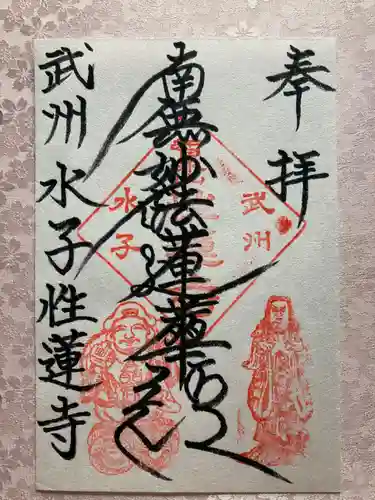 奉拝
南無妙法蓮華経
武州 水子 性蓮寺
武州
水子